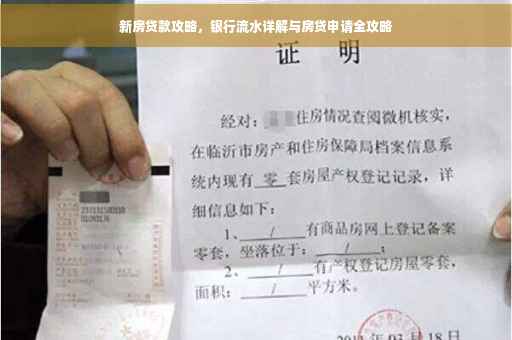 新房贷款攻略，银行流水详解与房贷申请全攻略
证 明
经对：住房情况查阅微机核实，
在临沂市房产和住房保障局档案信息系
统内现有 零 套房屋产权登记记录，详
细信息如下：
1、 / 有商品房网上登记备案
零套，坐落位于： / ；
2、 / 有产权登记房屋零套，
面积： / 平方米。
03月18日